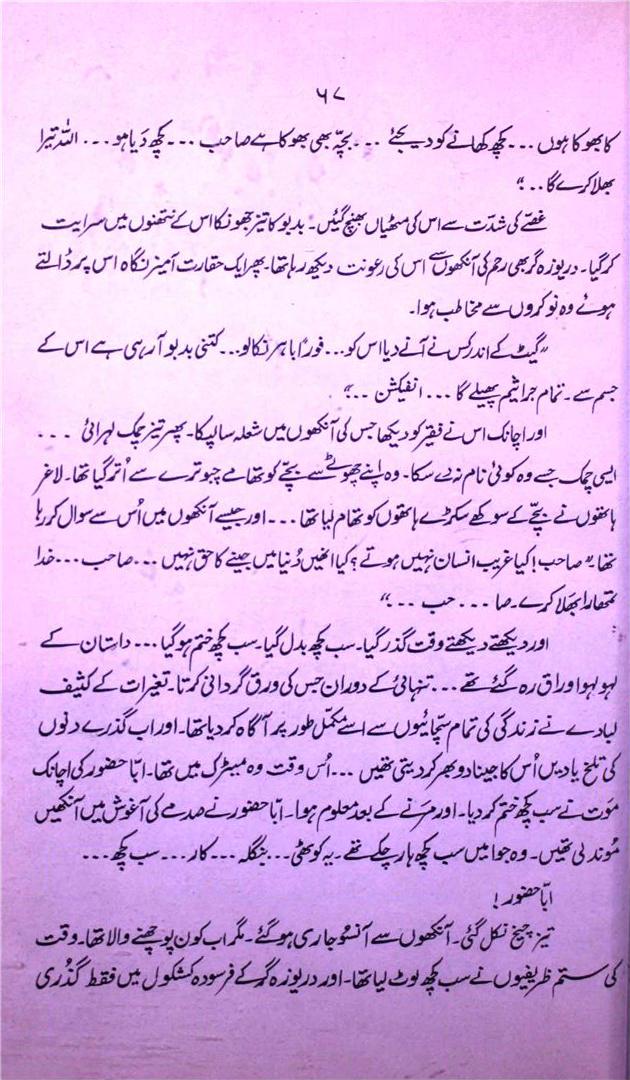 ۶۷
کا بھوکا ہوں ۔۔۔ کچھ کھانے کو دیجئے ۔۔۔ بچّہ بھی بھوکا ہے صاحب ۔۔۔ کچھ دَیا ہو ۔۔۔ اللہ تیرا
بھلا کرے گا ۔۔۔"
غصّے کی شدّت سے اس کی مٹھیاں بھنچ گئیں۔ بدبو کا تیز جھونکا اس کے نتھنوں میں سرایت
کر گیا۔ دریوزہ گر بھی رحم کی آنکھوں سے اس کی رعونت دیکھ رہا تھا۔ پھر ایک حقارت آمیز نگاہ اس پر ڈالتے
ہوئے وہ نوکروں سے مخاطب ہوا۔
"گیٹ کے اندر کس نے آنے دیا اس کو ۔۔۔ فوراً باہر نکالو ۔۔۔ کتنی بدبو آ رہی ہے اس کے
جسم سے۔ تمام جراثیم پھیلے گا ۔۔۔ انفیکشن ۔۔۔"
اور اچانک اس نے فقیر کو دیکھا جس کی آنکھوں میں شعلہ سا لپکا۔ پھر تیز چمک لہرائی ۔۔۔
ایسی چمک جسے وہ کوئی نام نہ دے سکا۔ وہ اپنے چھوٹے سے بچّے کو تھامے چبوترے سے اُتر گیا تھا۔ لاغر
ہاتھوں نے بچّے کے سوکھے سکڑے ہاتھوں کو تھام لیا تھا ۔۔۔ اور جیسے آنکھوں میں اُس سے سوال کر رہا
تھا۔ "صاحب! کیا غریب انسان نہیں ہوتے؟ کیا انھیں دُنیا میں جینے کا حق نہیں ۔۔۔ صاحب ۔۔۔ خدا
تمھارا بھلا کرے۔ صا ۔۔۔ حب ۔۔۔"
اور دیکھتے دیکھتے وقت گذر گیا۔ سب کچھ بدل گیا۔ سب کچھ ختم ہو گیا ۔۔۔ داستان کے
لہو لہو اوراق رہ گئے تھے ۔۔۔ تنہائی کے دوران جس کی ورق گردانی کرتا۔ تغیرات کے کثیف
لبادے نے زندگی کی تمام سچائیوں سے اسے مکمّل طور پر آگاہ کر دیا تھا۔ اور اب گذرے دنوں
کی تلخ یادیں اُس کا جینا دوبھر کر دیتی تھیں ۔۔۔ اُس وقت وہ میٹرک میں تھا۔ ابّا حضور کی اچانک
موت نے سب کچھ ختم کر دیا۔ اور مرنے کے بعد معلوم ہوا۔ ابّا حضور نے صدمے کی آغوش میں آنکھیں
مُوند لی تھیں۔ وہ جوا میں سب کچھ ہار چکے تھے۔ یہ کوٹھی ۔۔۔ بنگلہ ۔۔۔ کار ۔۔۔ سب کچھ ۔۔۔
ابّا حضور!
تیز چیخ نکل گئی۔ آنکھوں سے آنسُو جاری ہو گئے۔ مگر اب کون پوچھنے والا تھا۔ وقت
کی ستم ظریفیوں نے سب کچھ لوٹ لیا تھا۔ اور دریوزہ گر کے فرسودہ کشکول میں فقط گذری